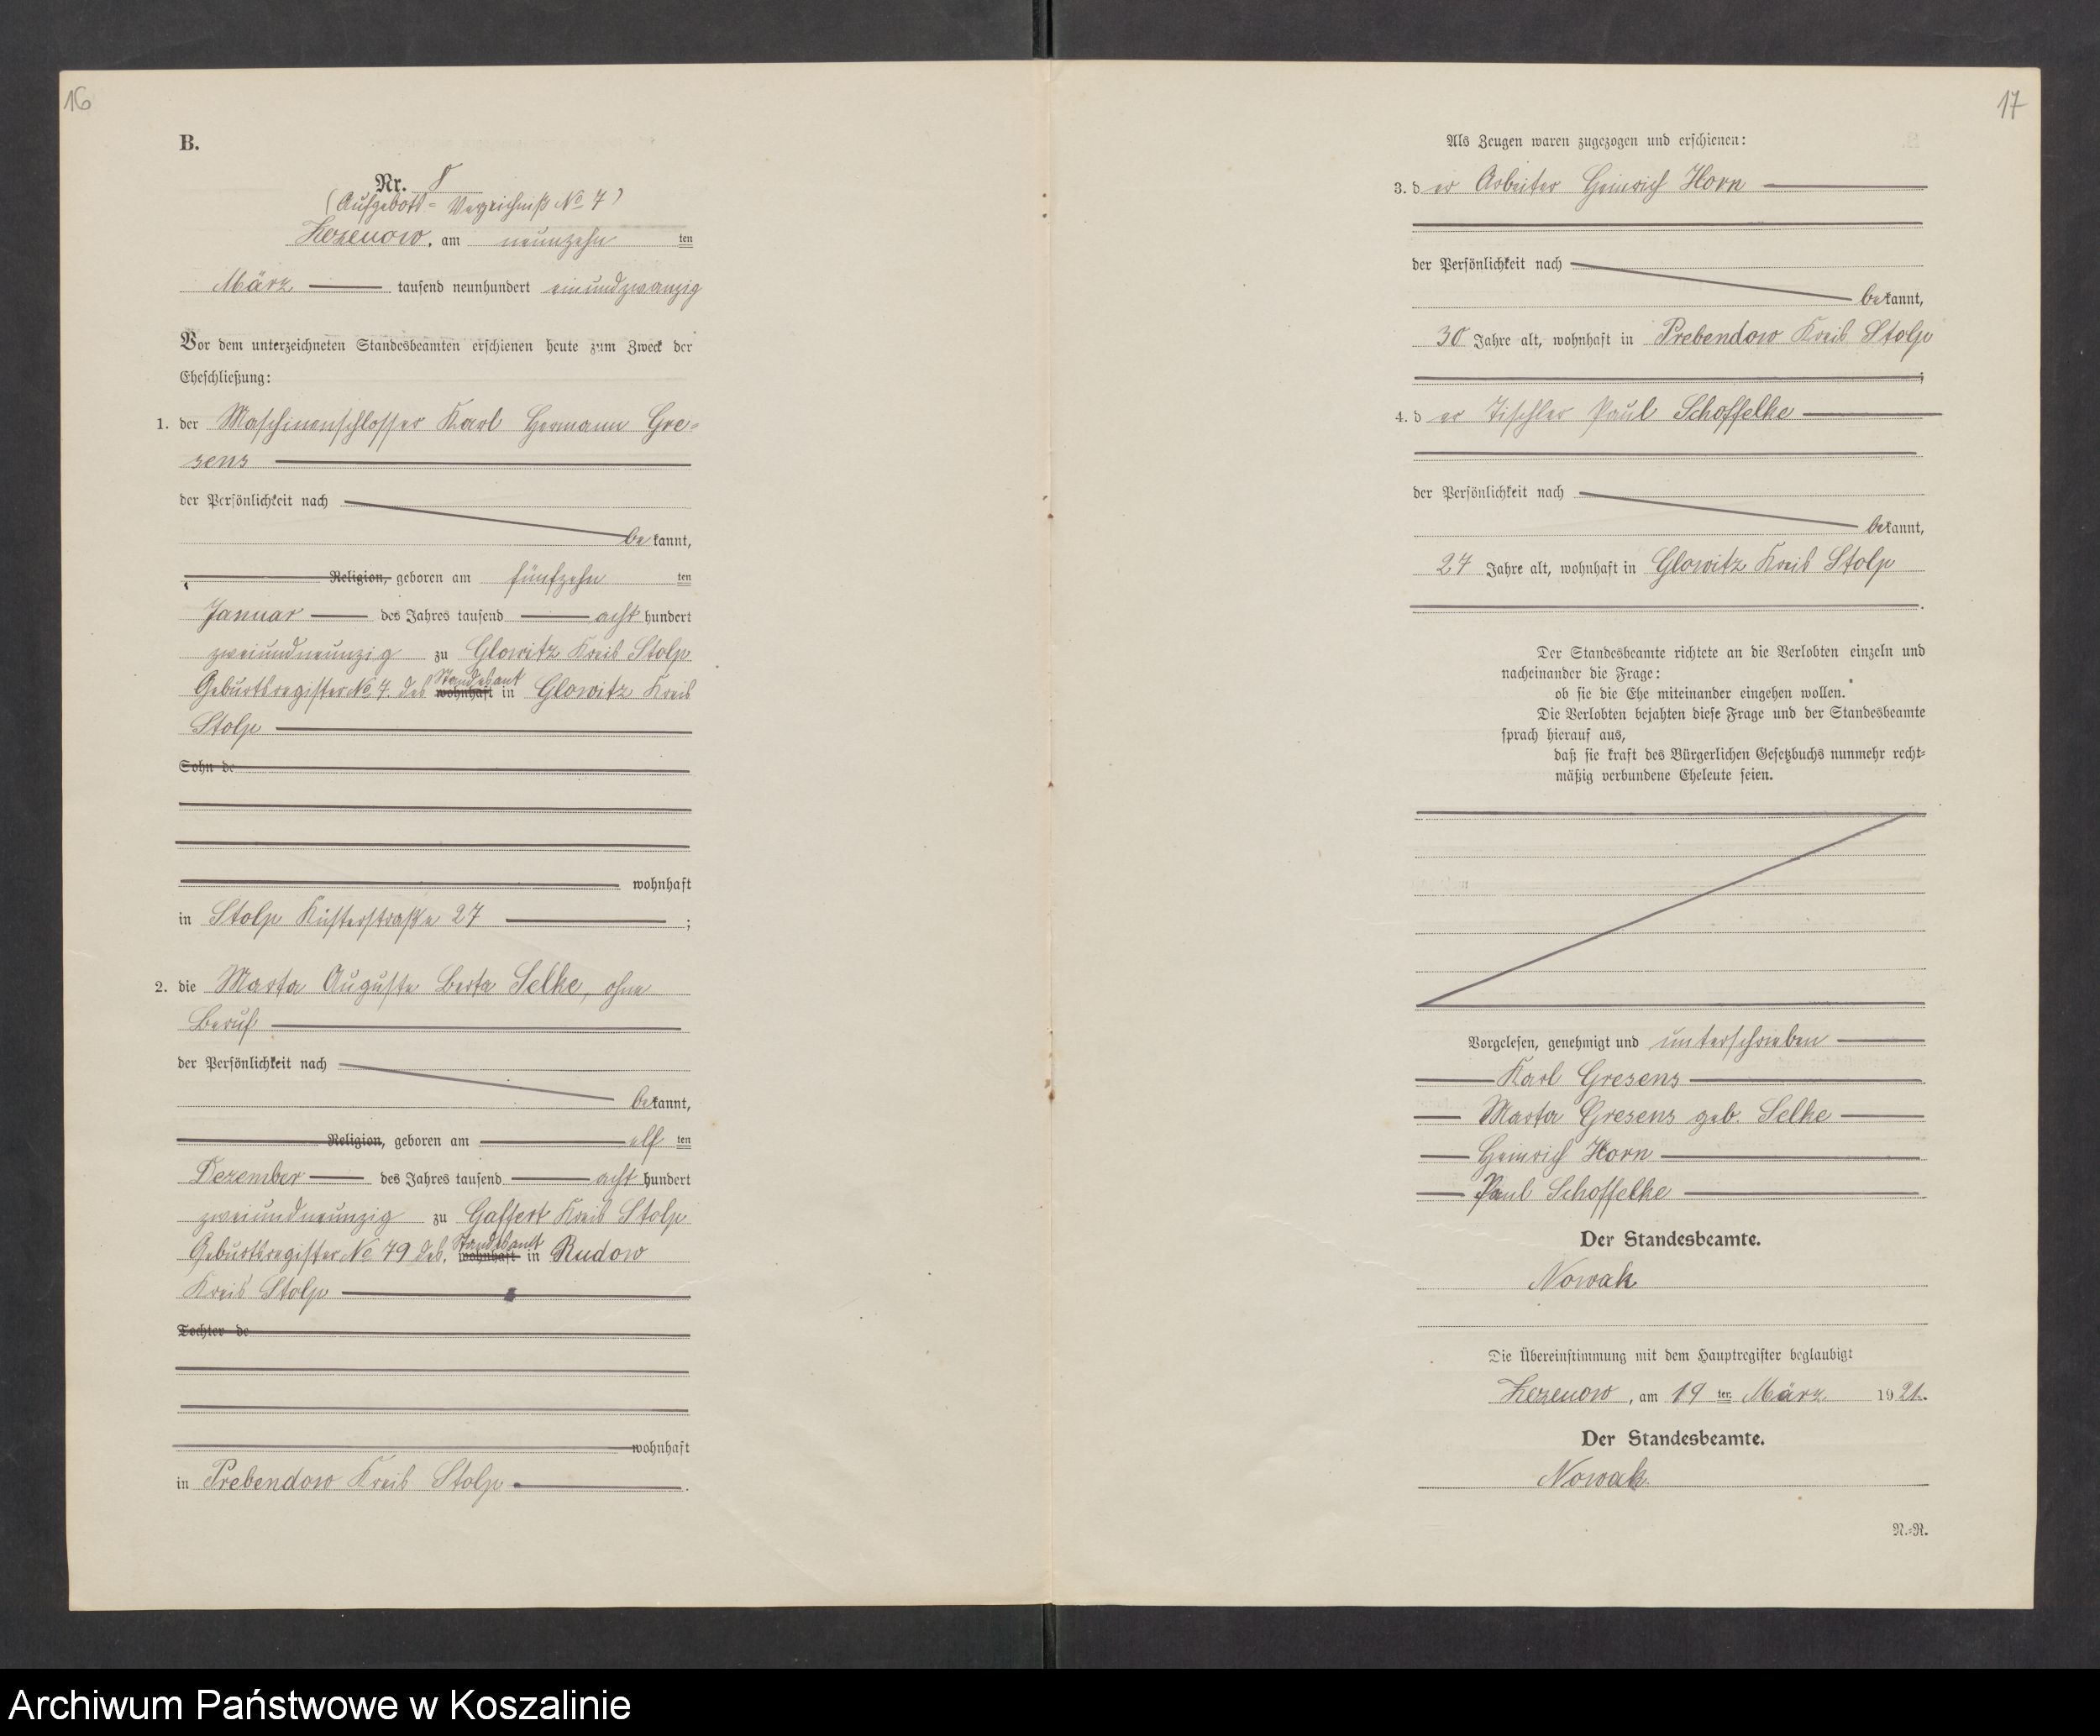 16
B.
Nr. 8
(Aufgebots-Verzeichniß No 7)
Zezenow, am neunzehn ten
März tausend neunhundert einundzwanzig
Vor dem unterzeichneten Standesbeamten erschienen heute zum Zweck der
Eheschließung:
1. der Maschinenschlosser Karl Hermann Gre-
sens
der Persönlichkeit nach
bekannt,
Religion, geboren am fünfzehn ten
Januar des Jahres tausend acht hundert
zweiundneunzig zu Glowitz Kreis Stolp
Geburtsregister No 7. des Standesamt wohnhaft in Glowitz Kreis
Stolp
Sohn de
wohnhaft
in Stolp Küsterstraße 27 ;
2. die Marta Auguste Berta Selke, ohne
Beruf
der Persönlichkeit nach
bekannt,
Religion, geboren am elf ten
Dezember des Jahres tausend acht hundert
zweiundneunzig zu Gaffert Kreis Stolp
Geburtsregister No 79 des. Standesamt wohnhaft in Rudow
Kreis Stolp
Tochter de
wohnhaft
in Prebendow Kreis Stolp .
17
Als Zeugen waren zugezogen und erschienen:
3. der Arbeiter Heinrich Horn
der Persönlichkeit nach
bekannt,
30 Jahre alt, wohnhaft in Prebendow Kreis Stolp
;
4. der Tischler Paul Schoffelke
der Persönlichkeit nach
bekannt,
27 Jahre alt, wohnhaft in Glowitz Kreis Stolp
.
Der Standesbeamte richtete an die Verlobten einzeln und
nacheinander die Frage:
ob sie die Ehe miteinander eingehen wollen.
Die Verlobten bejahten diese Frage und der Standesbeamte
sprach hierauf aus,
daß sie kraft des Bürgerlichen Gesetzbuchs nunmehr recht-
mäßig verbundene Eheleute seien.
Vorgelesen, genehmigt und unterschrieben
Karl Gresens
Marta Gresens geb. Selke
Heinrich Horn
Paul Schoffelke
Der Standesbeamte.
Nowak
Die Übereinstimmung mit dem Hauptregister beglaubigt
Zezenow, am 19 ten März 1921.
Der Standesbeamte.
Nowak
N.-R.
Archiwum Państwowe w Koszalinie